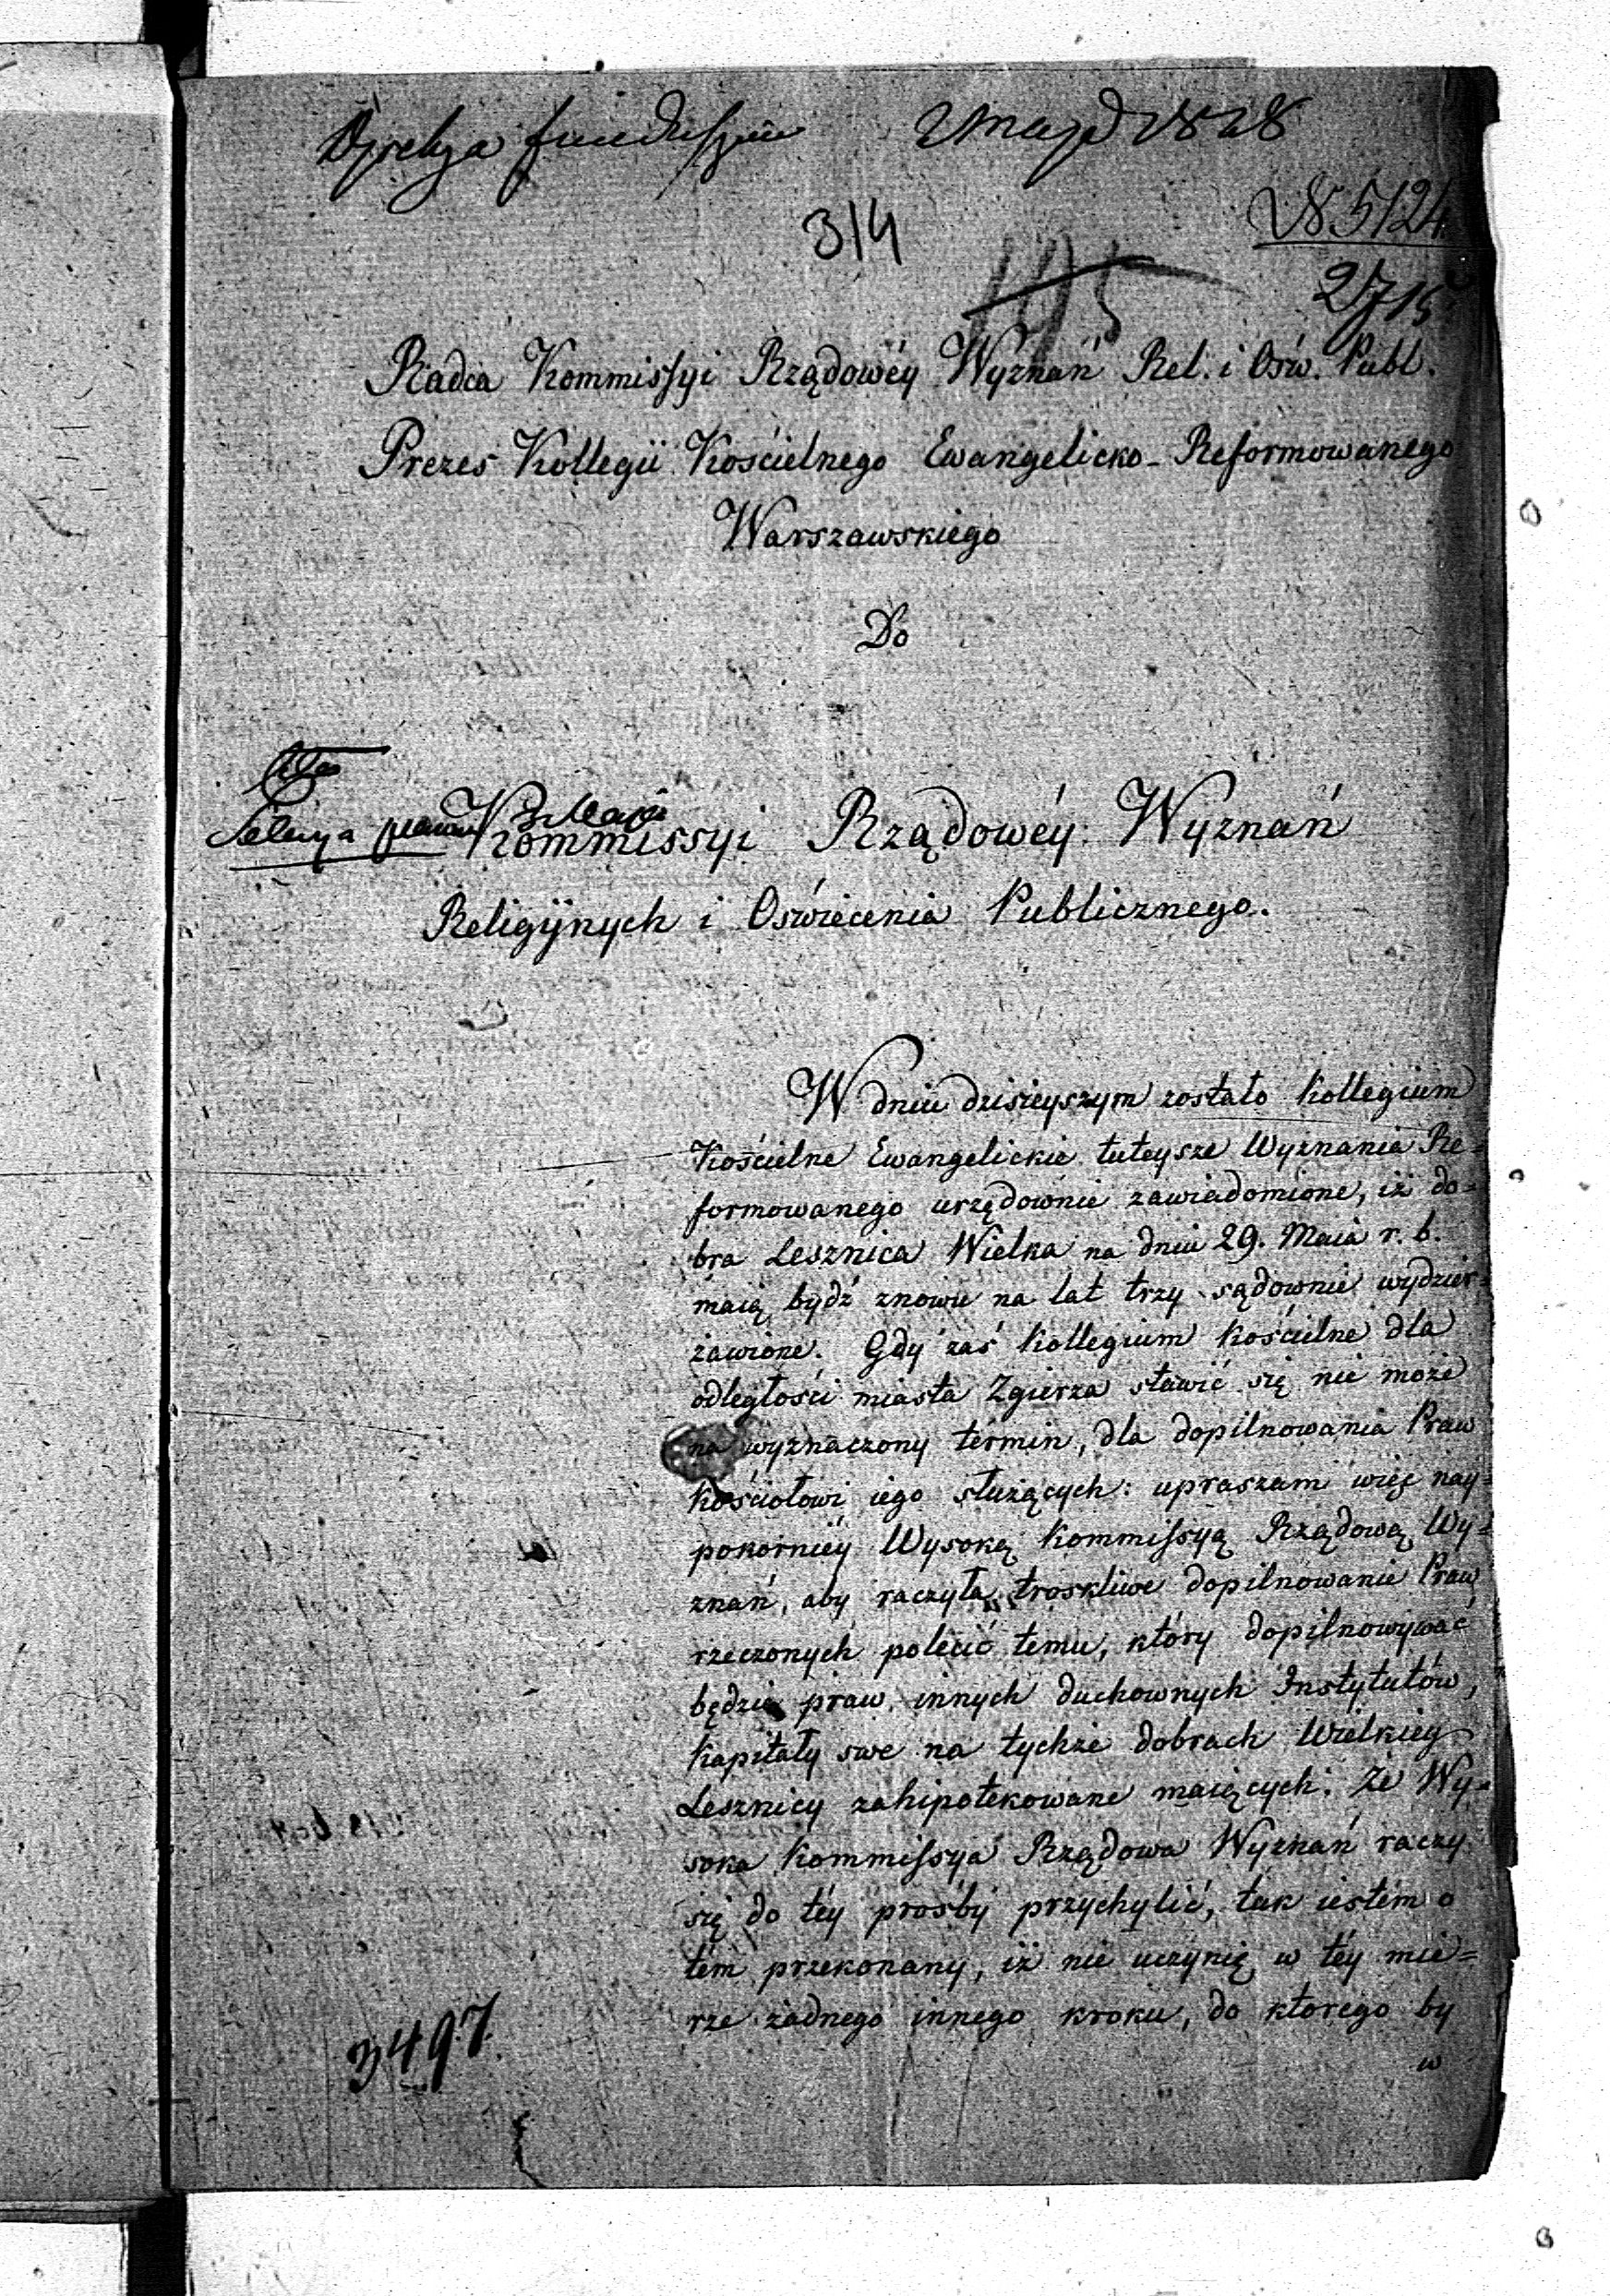 Dyrekcya funduszów 2 maja 1828
314
N 5124
2715
195
Radca Kommissyi Rządowéy Wyznań Rel. i Ośw. Publ.
Prezes Kollegii Kościelnego Ewangelicko-Reformowanego
Warszawskiego
Do
Sekcya 3 Maja
Kommissyi Rządowéy Wyznań
Religijnych i Oświecenia Publicznego.
W dniu dzisieyszym zostało Kollegium
Kościelne Ewangelickie tuteysze Wyznania Re=
formowanego urzędownie zawiadomione, iż do=
bra Lesznica Wielka na dniu 29. Maia r. b.
maią bydź znowu na lat trzy sądownie wydzier=
żawione. Gdy zaś Kollegium Kościelne dla
odległości miasta Zgierza stawić się nie może
na wyznaczony termin, dla dopilnowania Praw
Kościołowi iego służących: upraszam więc nay=
pokorniéy Wysoką Kommissyą Rządową Wy=
znań, aby raczyła troskliwe dopilnowanie Praw
rzeczonych polecić temu, który dopilnowywać
będzie praw innych duchownych Instytutów,
Kapitały swe na tychże dobrach Wielkiey
Lesznicy zahipotekowane maiących. Że Wy=
soka Kommissya Rządowa Wyznań raczy
się do téy prośby przychylić, tak iestem o
tém przekonany, iż nie uczynię w téy mie=
rze żadnego innego kroku, do którego by
w
3497.